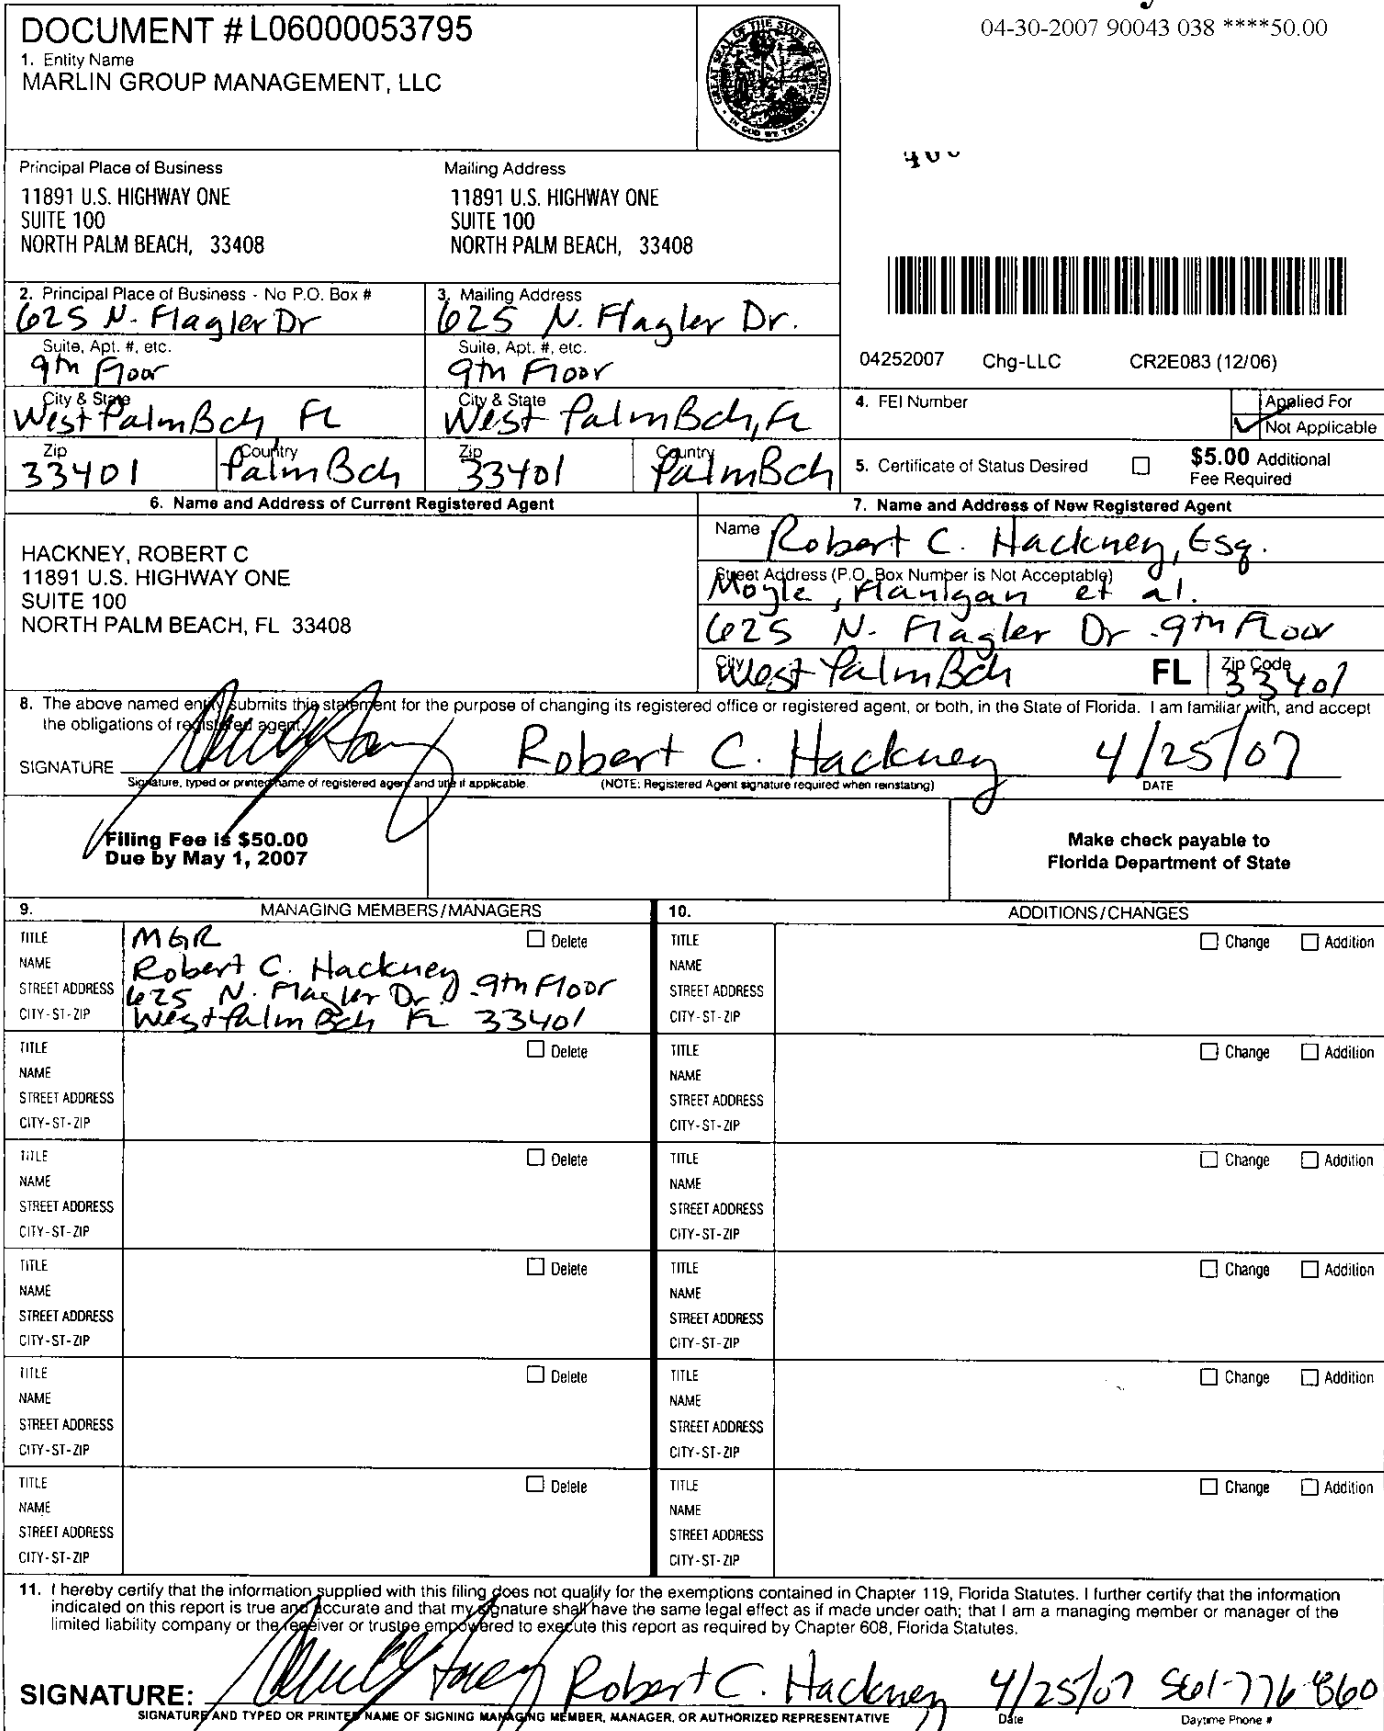 04-30-2007 90043 038 ****50.00
DOCUMENT # L06000053795
1. Entity Name
MARLIN GROUP MANAGEMENT, LLC
GREAT SEAL OF THE STATE OF FLORIDA
IN GOD WE TRUST
Principal Place of Business
11891 U.S. HIGHWAY ONE
SUITE 100
NORTH PALM BEACH, 33408
Mailing Address
11891 U.S. HIGHWAY ONE
SUITE 100
NORTH PALM BEACH, 33408
2. Principal Place of Business - No P.O. Box #
625 N. Flagler Dr
Suite, Apt. #, etc.
9th Floor
City & State
West Palm Bch FL
Zip
33401
Country
Palm Bch
3. Mailing Address
625 N. Flagler Dr.
Suite, Apt. #, etc.
9th Floor
City & State
West Palm Bch, FL
Zip
33401
Country
Palm Bch
04252007 Chg-LLC CR2E083 (12/06)
4. FEI Number
Applied For
Not Applicable
5. Certificate of Status Desired
$5.00 Additional
Fee Required
6. Name and Address of Current Registered Agent
HACKNEY, ROBERT C
11891 U.S. HIGHWAY ONE
SUITE 100
NORTH PALM BEACH, FL 33408
7. Name and Address of New Registered Agent
Name Robert C. Hackney, Esq.
Street Address (P.O. Box Number is Not Acceptable)
Moyle, Flanigan et al.
625 N. Flagler Dr. 9th Floor
City West Palm Bch FL Zip Code 33401
8. The above named entity submits this statement for the purpose of changing its registered office or registered agent, or both, in the State of Florida. I am familiar with, and accept
the obligations of registered agent.
SIGNATURE Robert C. Hackney 4/25/07
Signature, typed or printed name of registered agent and title if applicable. (NOTE: Registered Agent signature required when reinstating) DATE
Filing Fee is $50.00
Due by May 1, 2007
Make check payable to
Florida Department of State
9. MANAGING MEMBERS/MANAGERS
TITLE MGR Delete
NAME Robert C. Hackney
STREET ADDRESS 625 N. Flagler Dr. 9th Floor
CITY-ST-ZIP West Palm Bch FL 33401
TITLE Delete
NAME
STREET ADDRESS
CITY-ST-ZIP
TITLE Delete
NAME
STREET ADDRESS
CITY-ST-ZIP
TITLE Delete
NAME
STREET ADDRESS
CITY-ST-ZIP
TITLE Delete
NAME
STREET ADDRESS
CITY-ST-ZIP
TITLE Delete
NAME
STREET ADDRESS
CITY-ST-ZIP
10. ADDITIONS/CHANGES
TITLE Change Addition
NAME
STREET ADDRESS
CITY-ST-ZIP
TITLE Change Addition
NAME
STREET ADDRESS
CITY-ST-ZIP
TITLE Change Addition
NAME
STREET ADDRESS
CITY-ST-ZIP
TITLE Change Addition
NAME
STREET ADDRESS
CITY-ST-ZIP
TITLE Change Addition
NAME
STREET ADDRESS
CITY-ST-ZIP
TITLE Change Addition
NAME
STREET ADDRESS
CITY-ST-ZIP
11. I hereby certify that the information supplied with this filing does not qualify for the exemptions contained in Chapter 119, Florida Statutes. I further certify that the information
indicated on this report is true and accurate and that my signature shall have the same legal effect as if made under oath; that I am a managing member or manager of the
limited liability company or the receiver or trustee empowered to execute this report as required by Chapter 608, Florida Statutes.
SIGNATURE: Robert C. Hackney 4/25/07
SIGNATURE AND TYPED OR PRINTED NAME OF SIGNING MANAGING MEMBER, MANAGER, OR AUTHORIZED REPRESENTATIVE Date Daytime Phone #